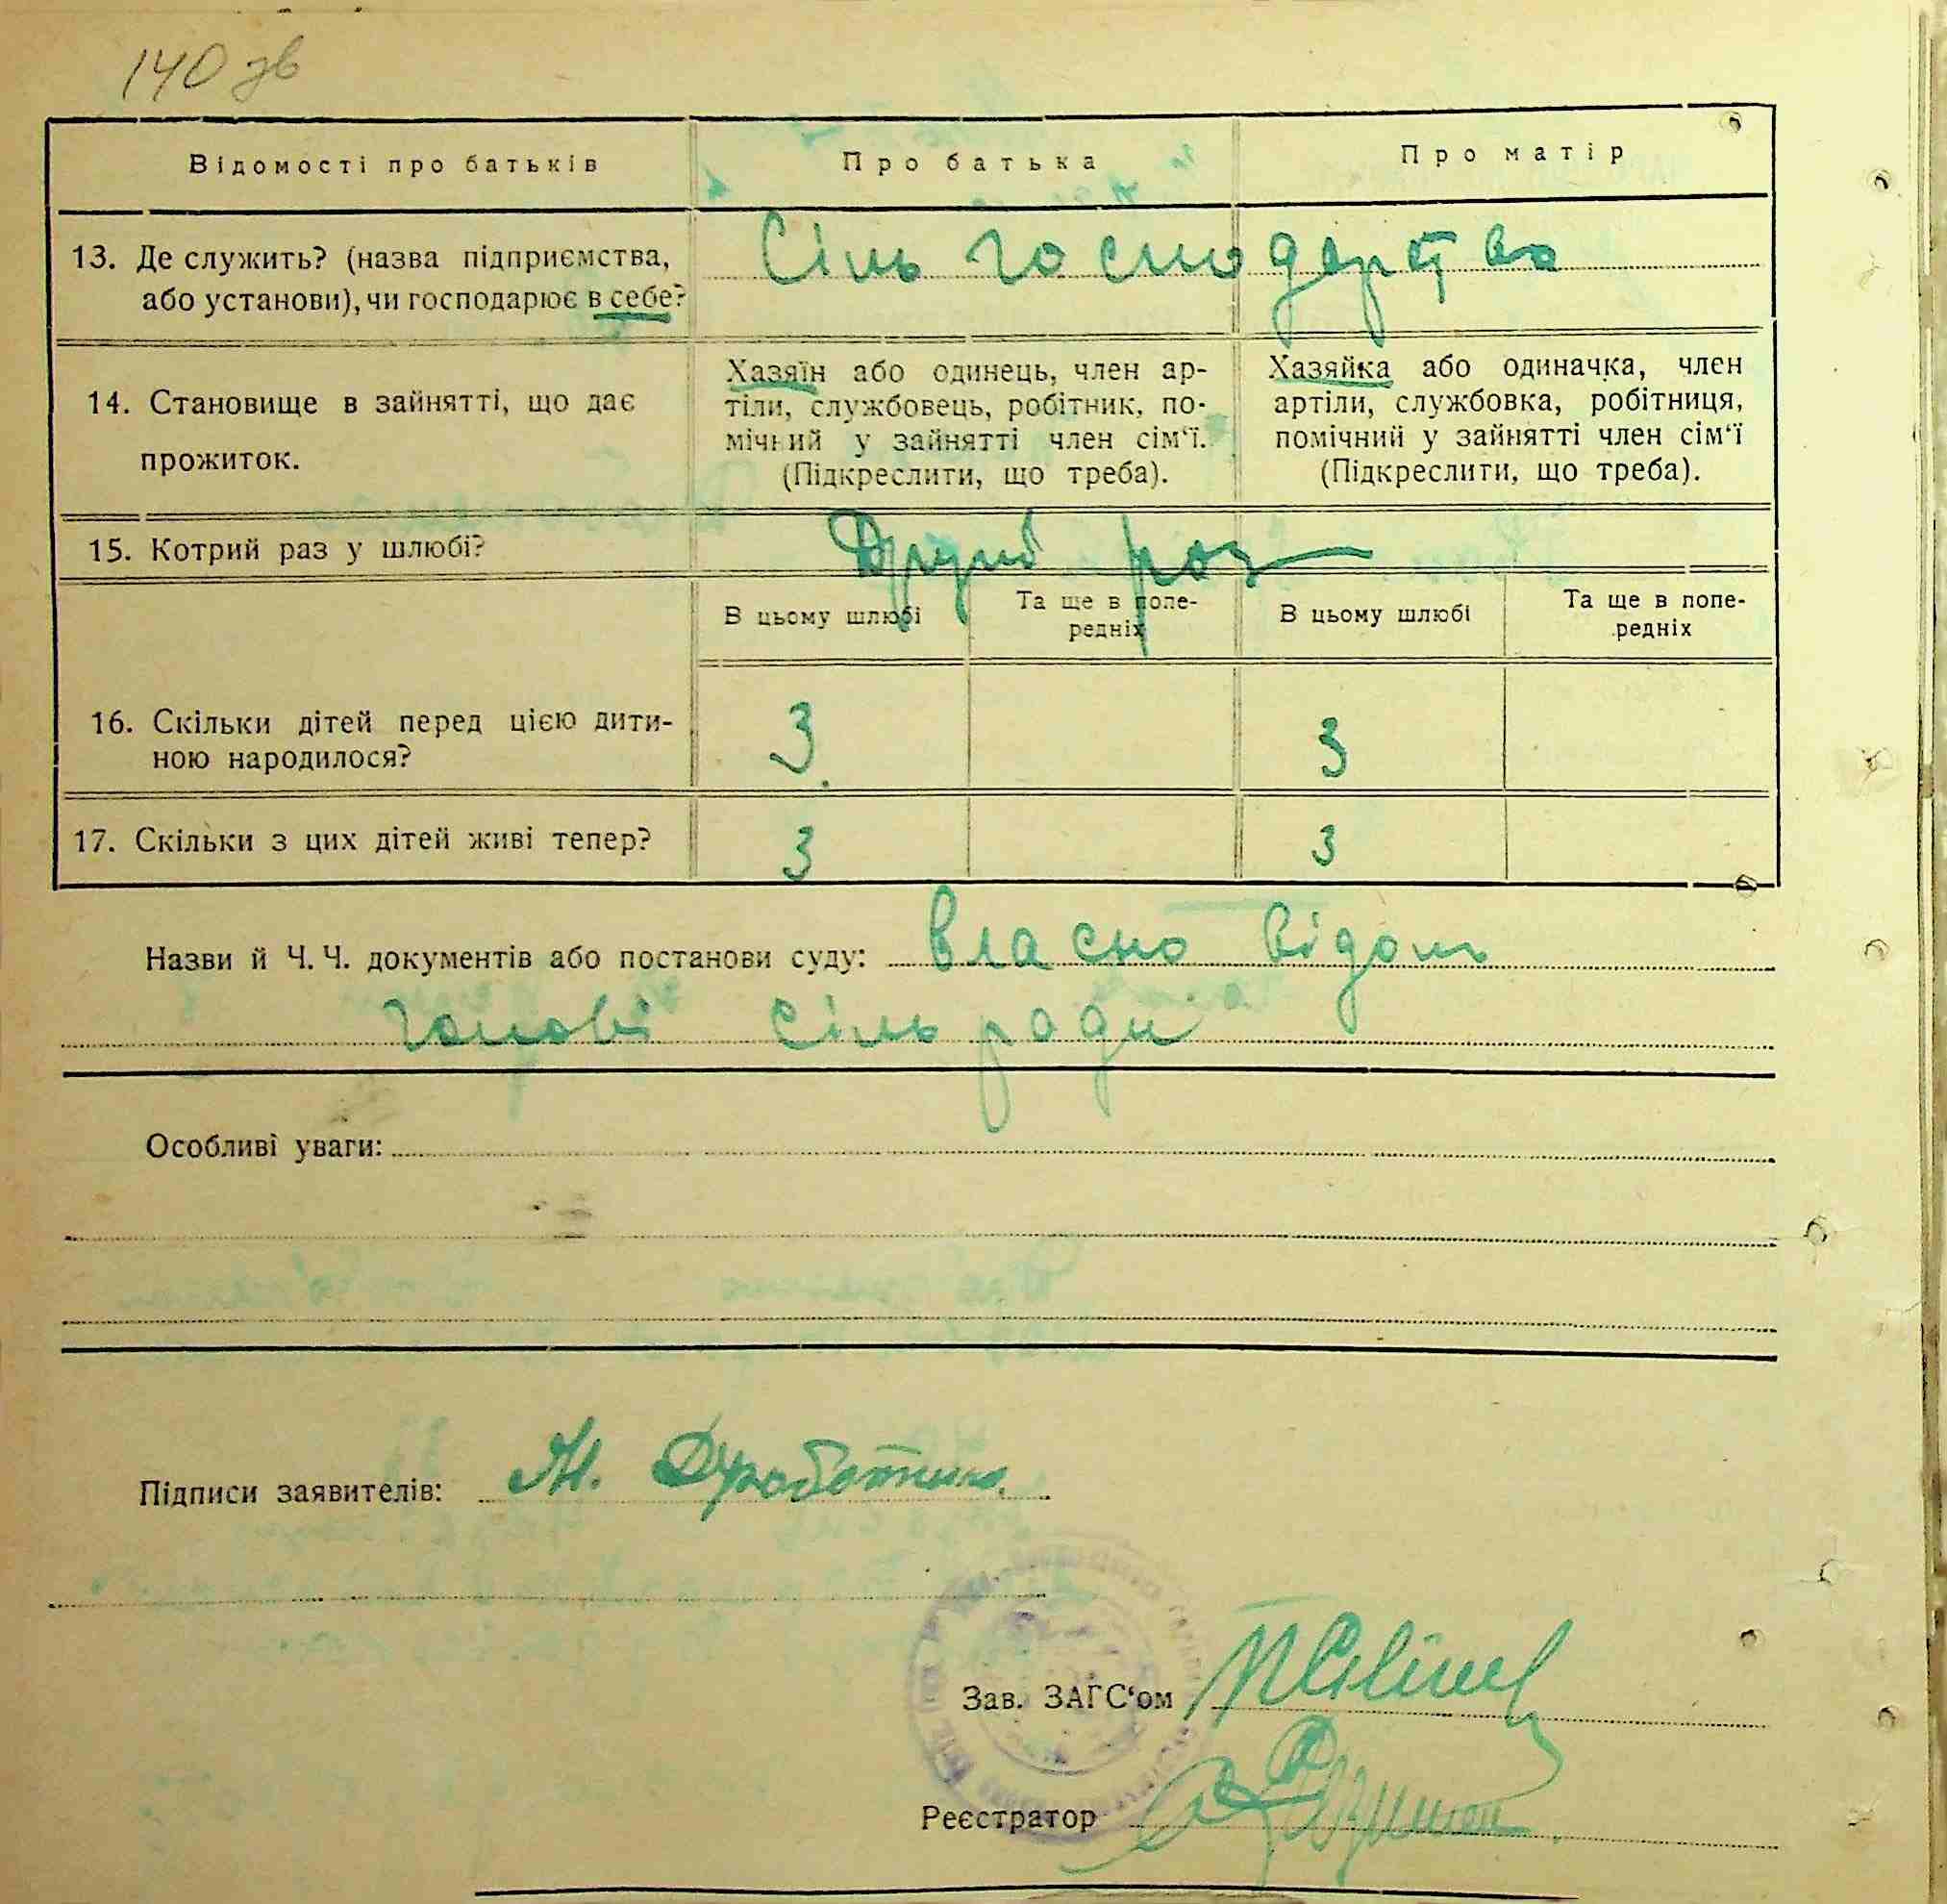 140 зв
Відомості про батьків
Про батька
Про матір
13. Де служить? (назва підприємства,
або установи), чи господарює в себе?
Сіль господарство
14. Становище в зайнятті, що дає
прожиток.
Хазяїн або одинець, член ар-
тіли, службовець, робітник, по-
мічний у зайнятті член сім'ї.
(Підкреслити, що треба).
Хазяйка або одиначка, член
артіли, службовка, робітниця,
помічний у зайнятті член сім'ї
(Підкреслити, що треба).
15. Котрий раз у шлюбі?
Другий раз
В цьому шлюбі
Та ще в попе-
редніх
В цьому шлюбі
Та ще в попе-
редніх
16. Скільки дітей перед цією дити-
ною народилося?
3
3
17. Скільки з цих дітей живі тепер?
3
3
Назви й Ч. Ч. документів або постанови суду: власно відом
голові сільради
Особливі уваги:
Підписи заявителів: М.
Зав. ЗАГС'ом
Реєстратор